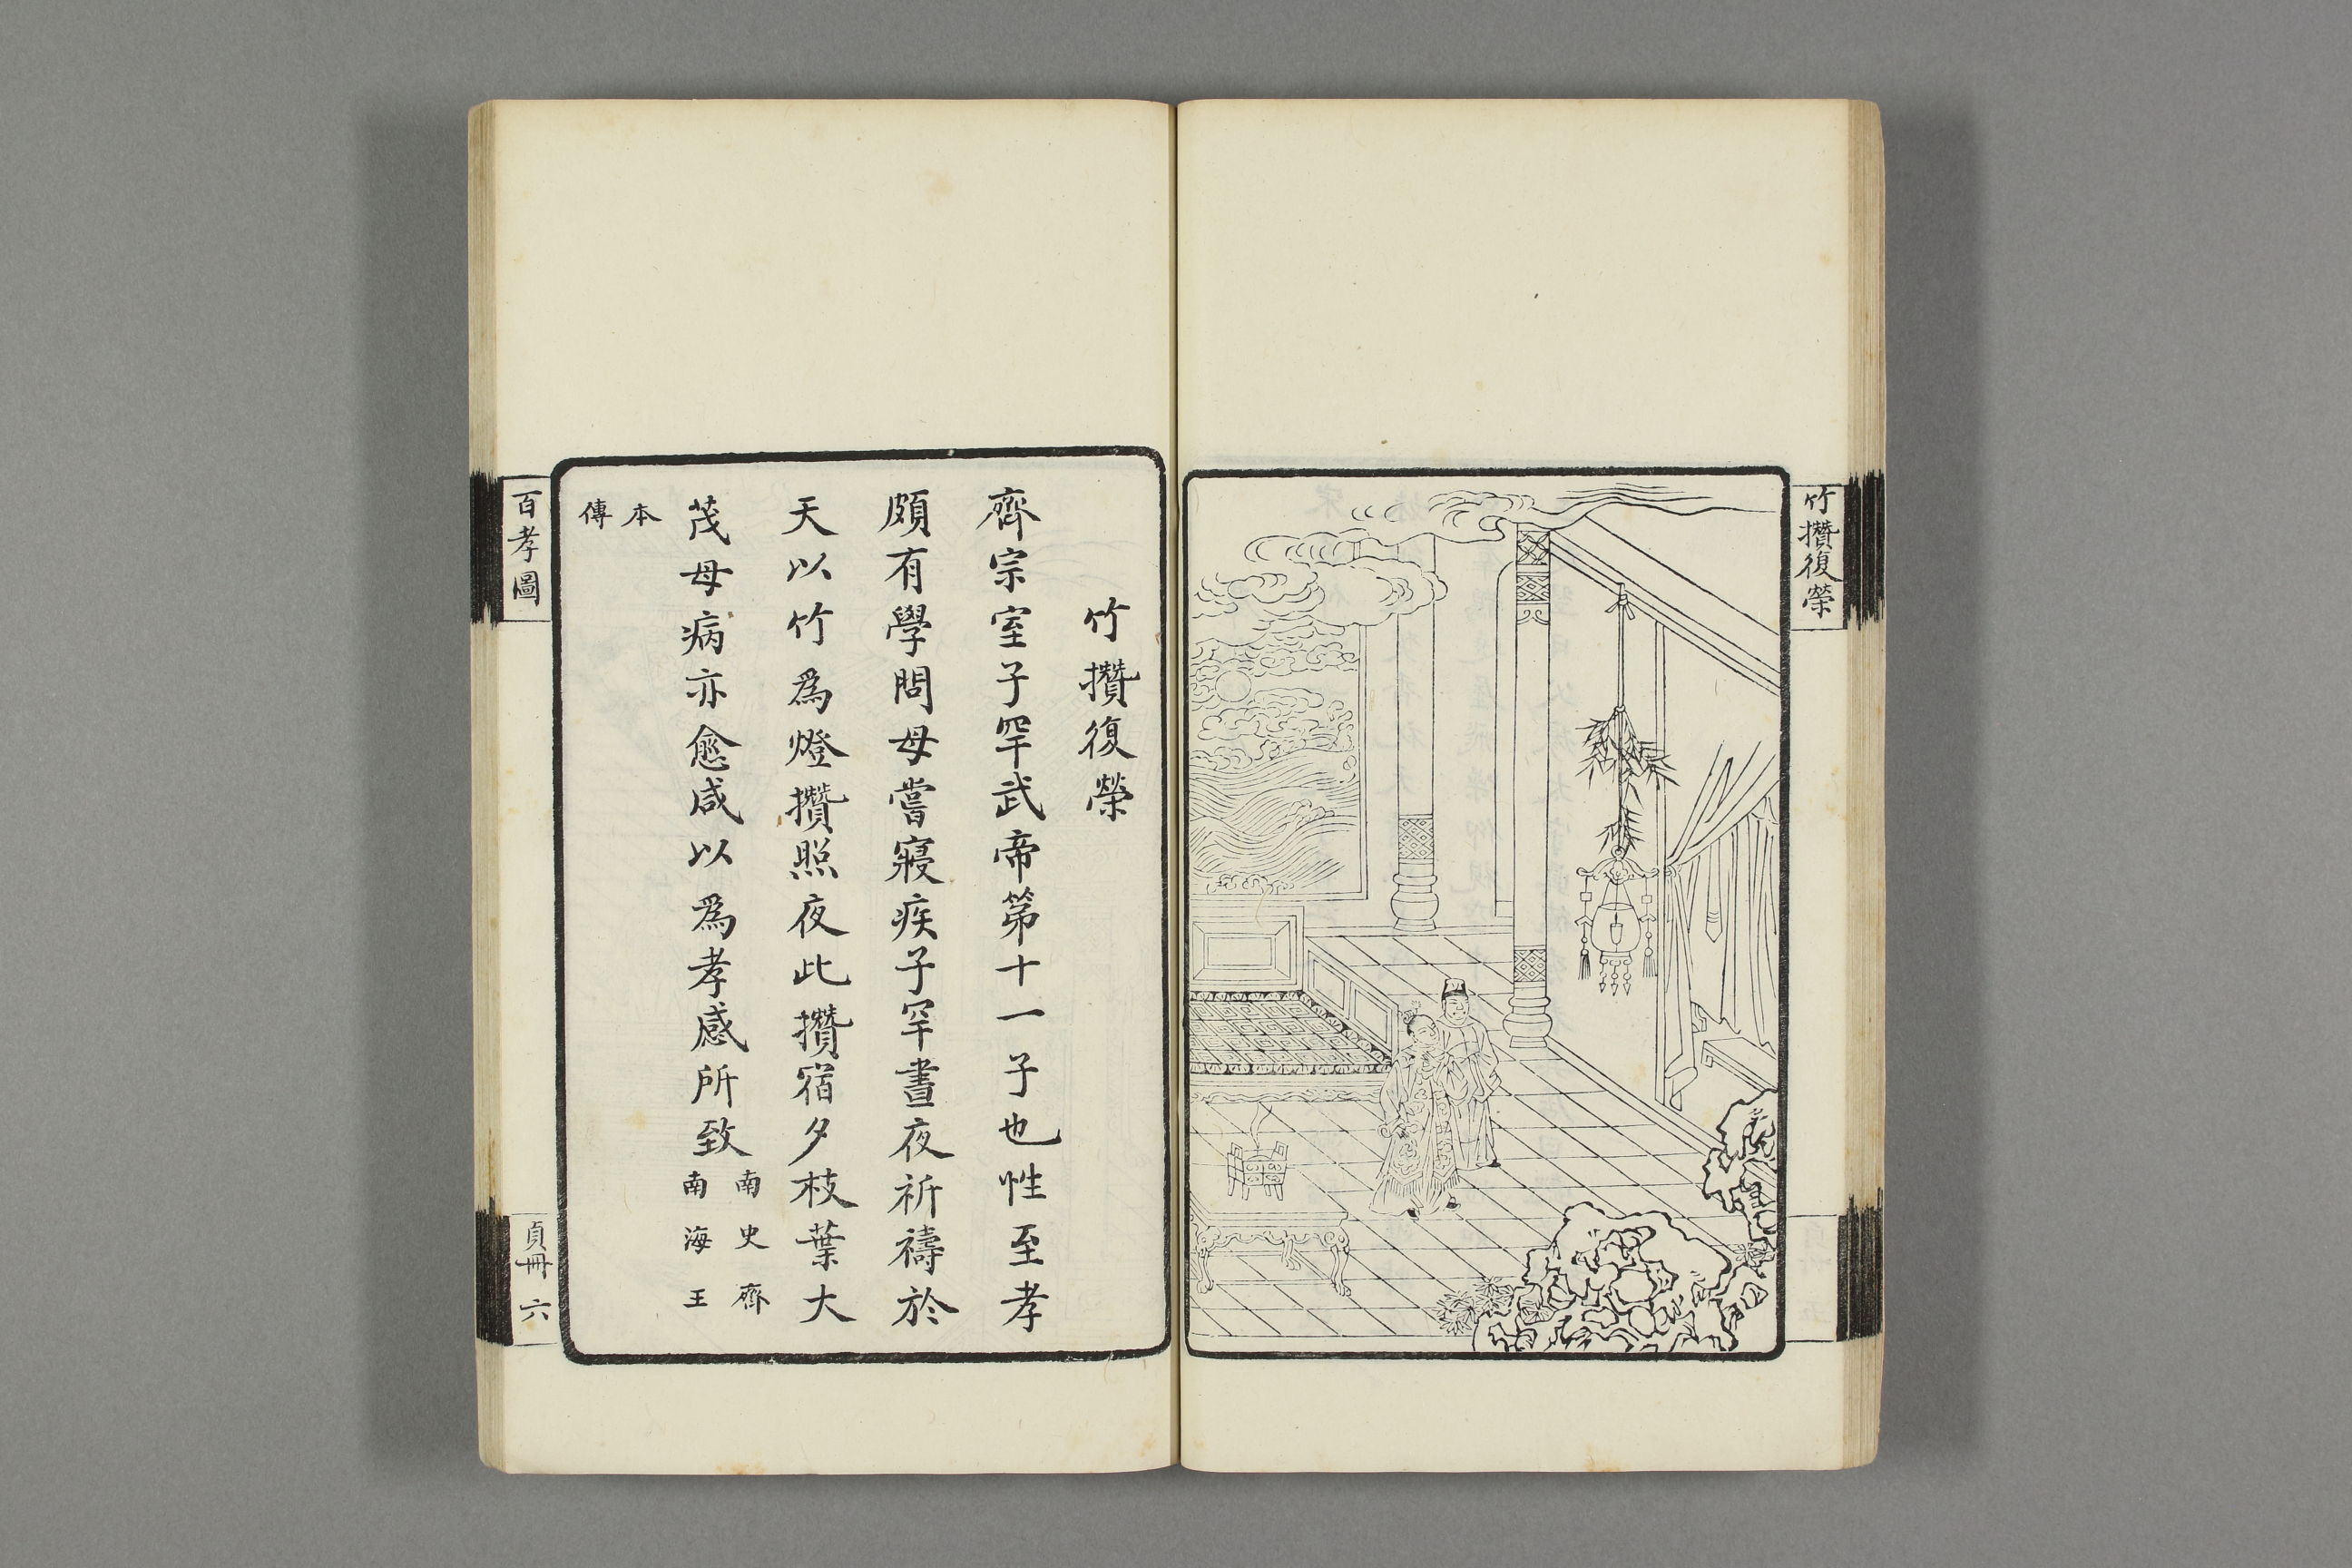 竹攢復榮
竹攢復榮
齊宗室子罕武帝第十一子也性至孝
頗有學問母嘗寢疾子罕晝夜祈禱於
天以竹為燈攢照夜此攢宿夕枝葉大
茂母病亦愈咸以為孝感所致
南史齊
南海王
本
傳
百孝圖
貞冊 六